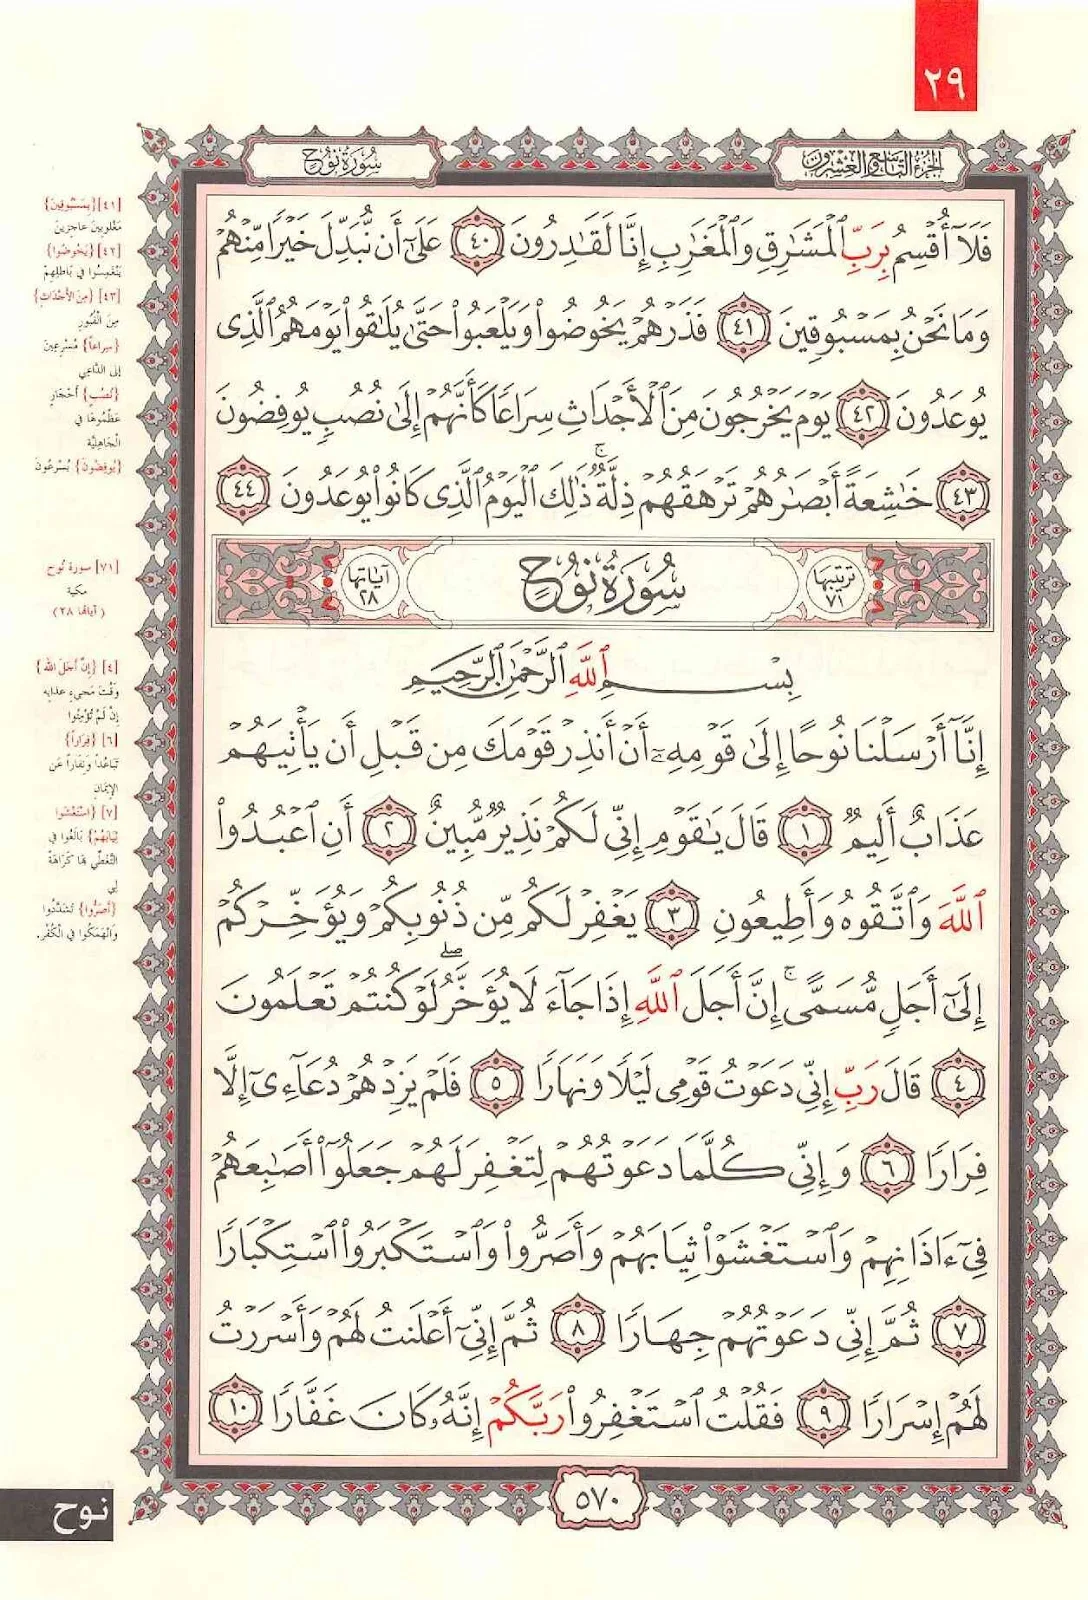 ٢٩
الجزء التاسع والعشرون
سورة نوح
فَلَآ أُقْسِمُ بِرَبِّ ٱلْمَشَٰرِقِ وَٱلْمَغَٰرِبِ إِنَّا لَقَٰدِرُونَ ٤٠ عَلَىٰٓ أَن نُّبَدِّلَ خَيْرًا مِّنْهُمْ
وَمَا نَحْنُ بِمَسْبُوقِينَ ٤١ فَذَرْهُمْ يَخُوضُوا۟ وَيَلْعَبُوا۟ حَتَّىٰ يُلَٰقُوا۟ يَوْمَهُمُ ٱلَّذِى
يُوعَدُونَ ٤٢ يَوْمَ يَخْرُجُونَ مِنَ ٱلْأَجْدَاثِ سِرَاعًا كَأَنَّهُمْ إِلَىٰ نُصُبٍ يُوفِضُونَ
٤٣ خَٰشِعَةً أَبْصَٰرُهُمْ تَرْهَقُهُمْ ذِلَّةٌ ۚ ذَٰلِكَ ٱلْيَوْمُ ٱلَّذِى كَانُوا۟ يُوعَدُونَ ٤٤
ترتيبها ٧١
سُورَةُ نُوحٍ
آياتها ٢٨
بِسْمِ ٱللَّهِ ٱلرَّحْمَٰنِ ٱلرَّحِيمِ
إِنَّآ أَرْسَلْنَا نُوحًا إِلَىٰ قَوْمِهِۦٓ أَنْ أَنذِرْ قَوْمَكَ مِن قَبْلِ أَن يَأْتِيَهُمْ
عَذَابٌ أَلِيمٌ ١ قَالَ يَٰقَوْمِ إِنِّى لَكُمْ نَذِيرٌ مُّبِينٌ ٢ أَنِ ٱعْبُدُوا۟
ٱللَّهَ وَٱتَّقُوهُ وَأَطِيعُونِ ٣ يَغْفِرْ لَكُم مِّن ذُنُوبِكُمْ وَيُؤَخِّرْكُمْ
إِلَىٰٓ أَجَلٍ مُّسَمًّى ۚ إِنَّ أَجَلَ ٱللَّهِ إِذَا جَآءَ لَا يُؤَخَّرُ ۖ لَوْ كُنتُمْ تَعْلَمُونَ
٤ قَالَ رَبِّ إِنِّى دَعَوْتُ قَوْمِى لَيْلًا وَنَهَارًا ٥ فَلَمْ يَزِدْهُمْ دُعَآءِىٓ إِلَّا
فِرَارًا ٦ وَإِنِّى كُلَّمَا دَعَوْتُهُمْ لِتَغْفِرَ لَهُمْ جَعَلُوٓا۟ أَصَٰبِعَهُمْ
فِىٓ ءَاذَانِهِمْ وَٱسْتَغْشَوْا۟ ثِيَابَهُمْ وَأَصَرُّوا۟ وَٱسْتَكْبَرُوا۟ ٱسْتِكْبَارًا
٧ ثُمَّ إِنِّى دَعَوْتُهُمْ جِهَارًا ٨ ثُمَّ إِنِّىٓ أَعْلَنتُ لَهُمْ وَأَسْرَرْتُ
لَهُمْ إِسْرَارًا ٩ فَقُلْتُ ٱسْتَغْفِرُوا۟ رَبَّكُمْ إِنَّهُۥ كَانَ غَفَّارًا ١٠
[٤١] {بِمَسْبُوقِينَ}
مَغْلُوبِينَ عَاجِزِينَ
[٤٢] {يَخُوضُوا}
يَنْغَمِسُوا فِي بَاطِلِهِمْ
[٤٣] {مِنَ الأَجْدَاثِ}
مِنَ الْقُبُورِ
{سِرَاعاً} مُسْرِعِينَ
إِلَى الدَّاعِي
{نُصُبٍ} أَحْجَارٍ
عَظَّمُوهَا فِي
الْجَاهِلِيَّةِ
{يُوفِضُونَ} يُسْرِعُونَ
[٧١] سورة نُوح
مكية
(آياتها ٢٨)
[٤] {إِنَّ أَجَلَ اللهِ}
وَقْتَ مَجِيءِ عذابِهِ
إِنْ لَمْ تُؤْمِنُوا
[٦] {فِرَاراً}
تَبَاعُداً وَنِفَاراً عَنِ
الإِيمَانِ
[٧] {اسْتَغْشَوا
ثِيَابَهُمْ} بَالَغُوا فِي
التَّغَطِّي بِهَا كَرَاهَةً
لِي
{أَصَرُّوا} تَشَدَّدُوا
وَانْهَمَكُوا فِي الْكُفْرِ.
٥٧٠
نوح